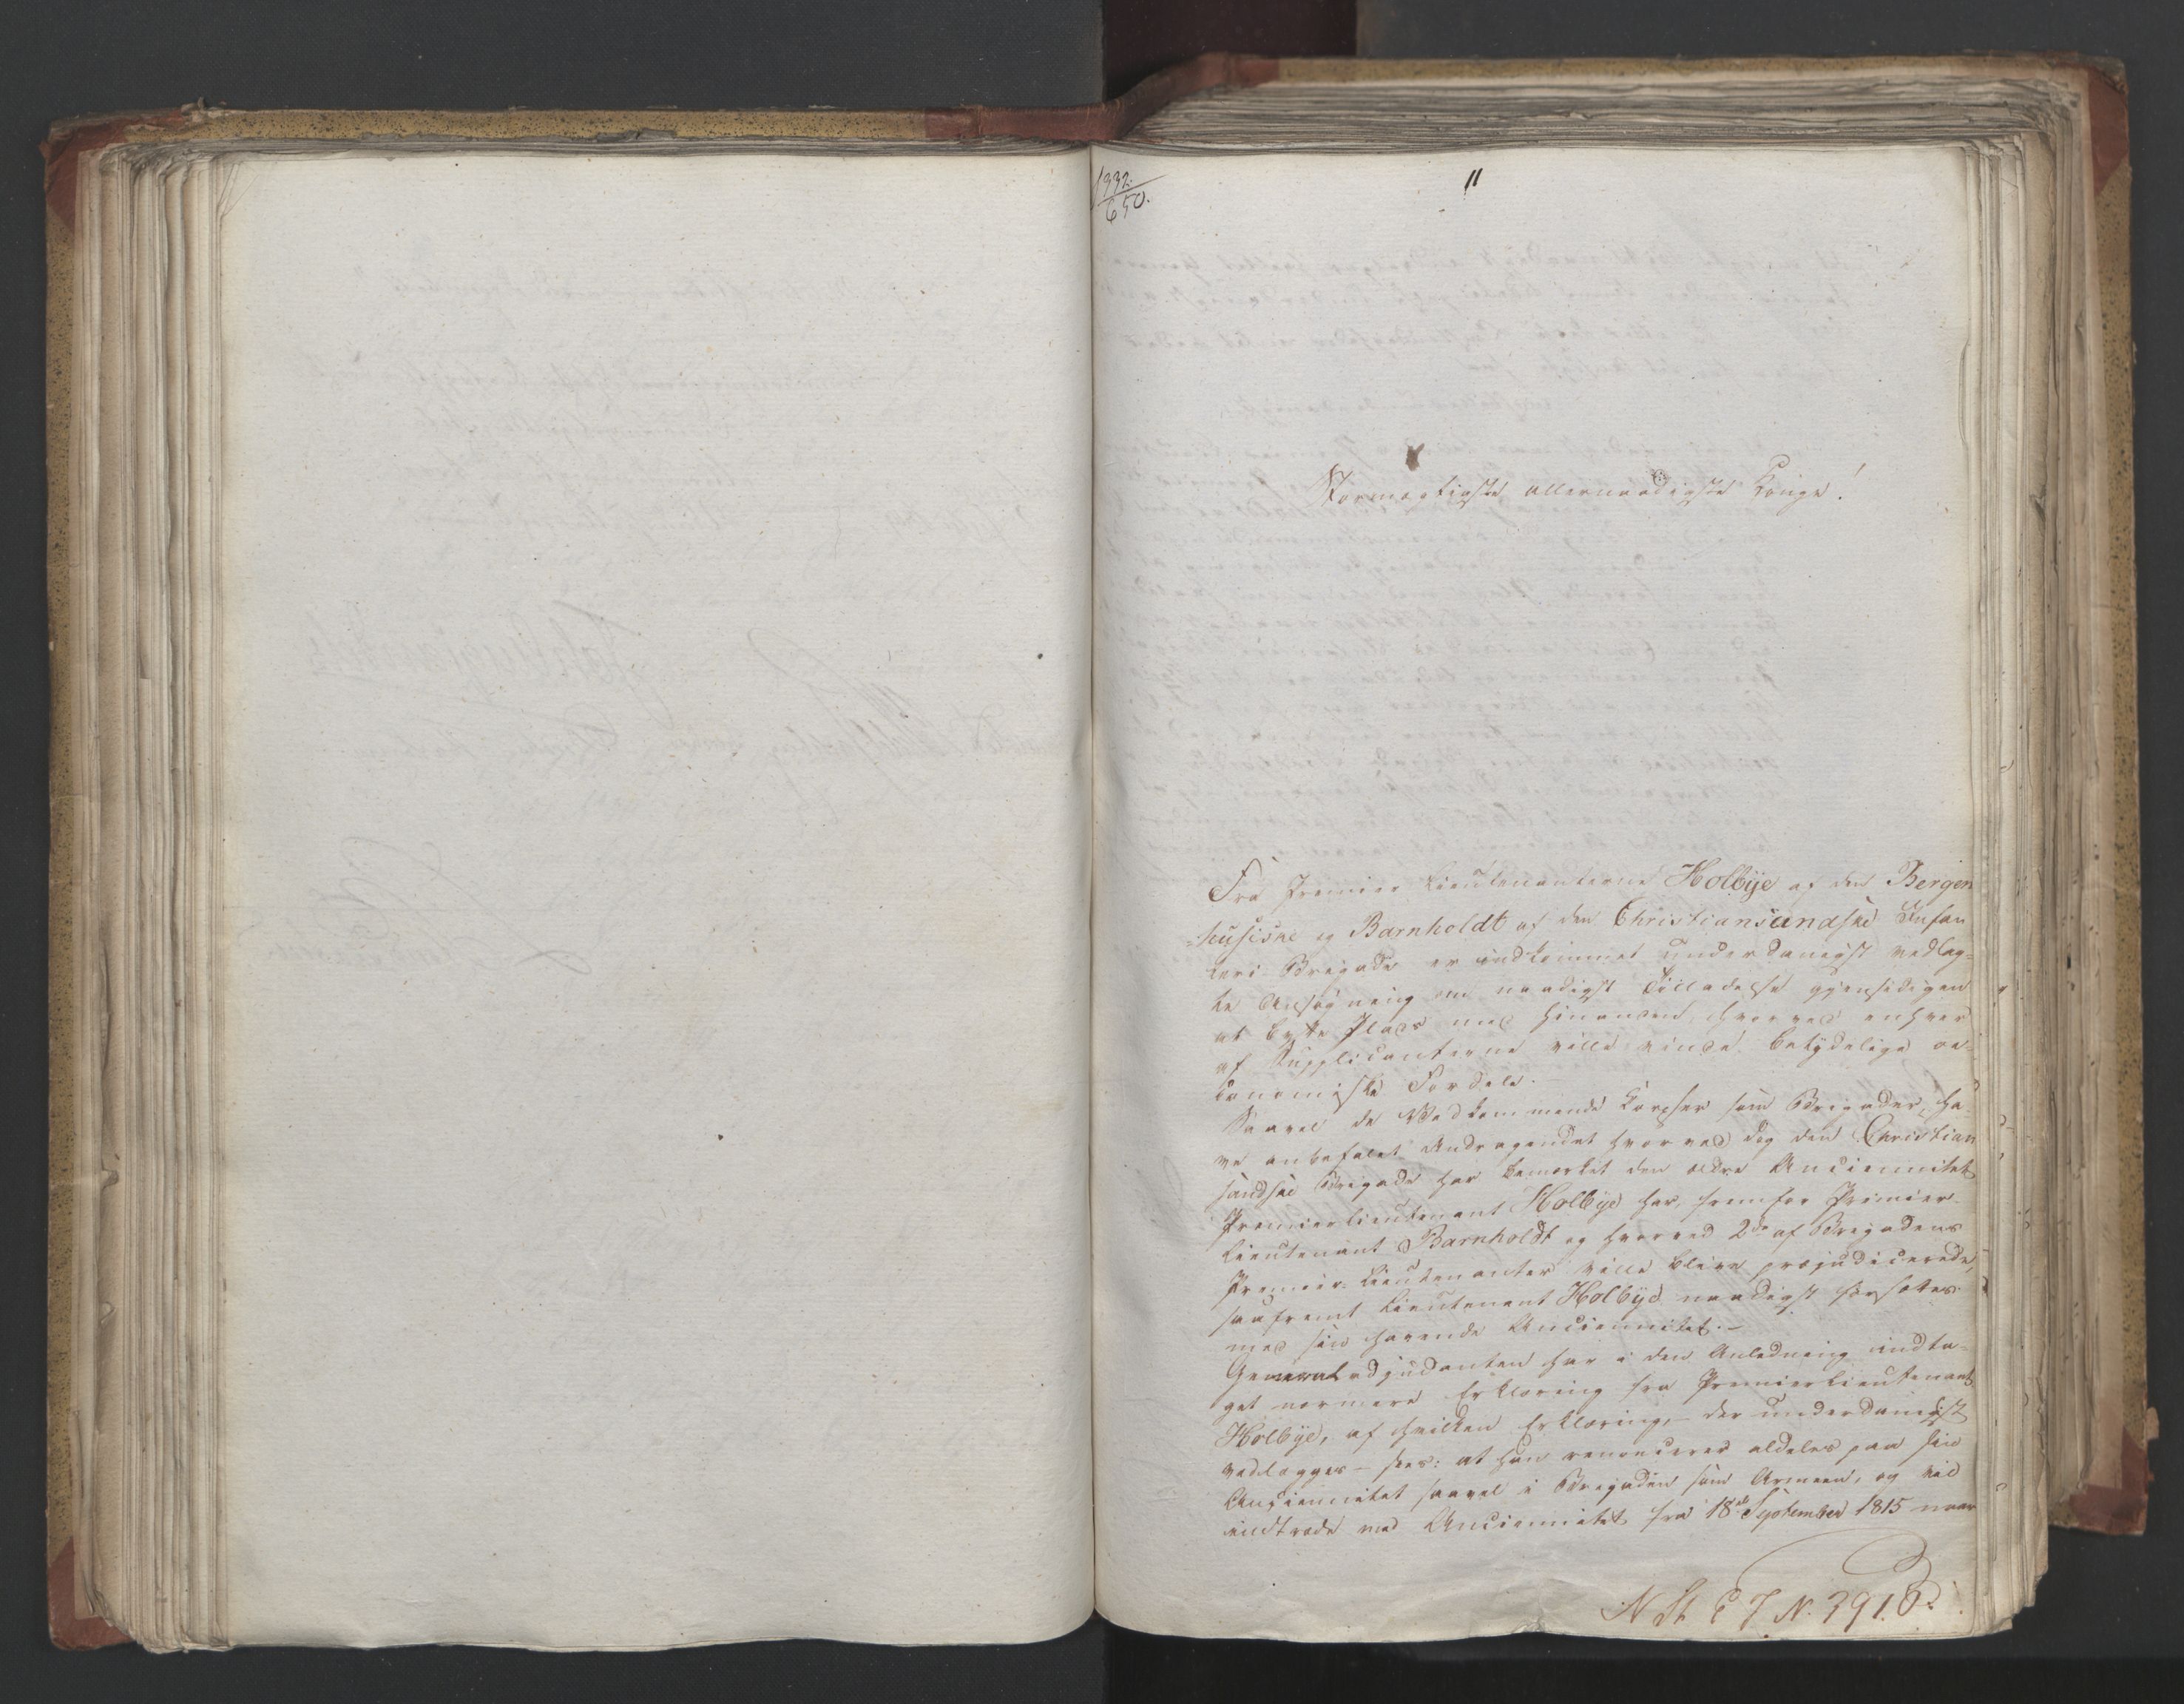 1332.
650.
11
Stormægtigste allernaadigste Konge!
Fra Premier Lieutenanterne Holbÿe af den Bergen
=husiske og Barnholdt af den Christiansandske Infan
teri Brigade er indkommet underdanigst vedlag=
te Ansøgning om naadigst Tilladelse gjensidigen
at bytte Plads med hinanden, hvorved enhver
af Supplicanterne ville vinde betydelige oe-
conomiske Fordele.
Saavel de Vedkommende Korpser som Brigader, ha
ve anbefalet Andragendet hvorved dog den Christian
sandske Brigade har bemærket den ældre Anciennitet
Premierlieutenant Holbÿe har, fremfor Premier-
Lieutenant Barnholdt og hvorved 2de af Brigadens
Premier-Lieutenanter ville blive præjudicerede,
saafremt Lieutenant Holbÿe naadigst forsættes
med sin havende Anciennitet.-
Generaladjudanten har i den Anledning indta-
get nærmere Erklæring fra Premierlieutenant
Holbÿe, af hvilken Erklæring,- der underdanigst
vedlægges - sees: at han renoncerer aldeles paa sin
Anciennitet saavel i Brigaden som Armeen, og vil
indtræde med Anciennitet fra 18de September 1815 naar
N St C J N. 391.